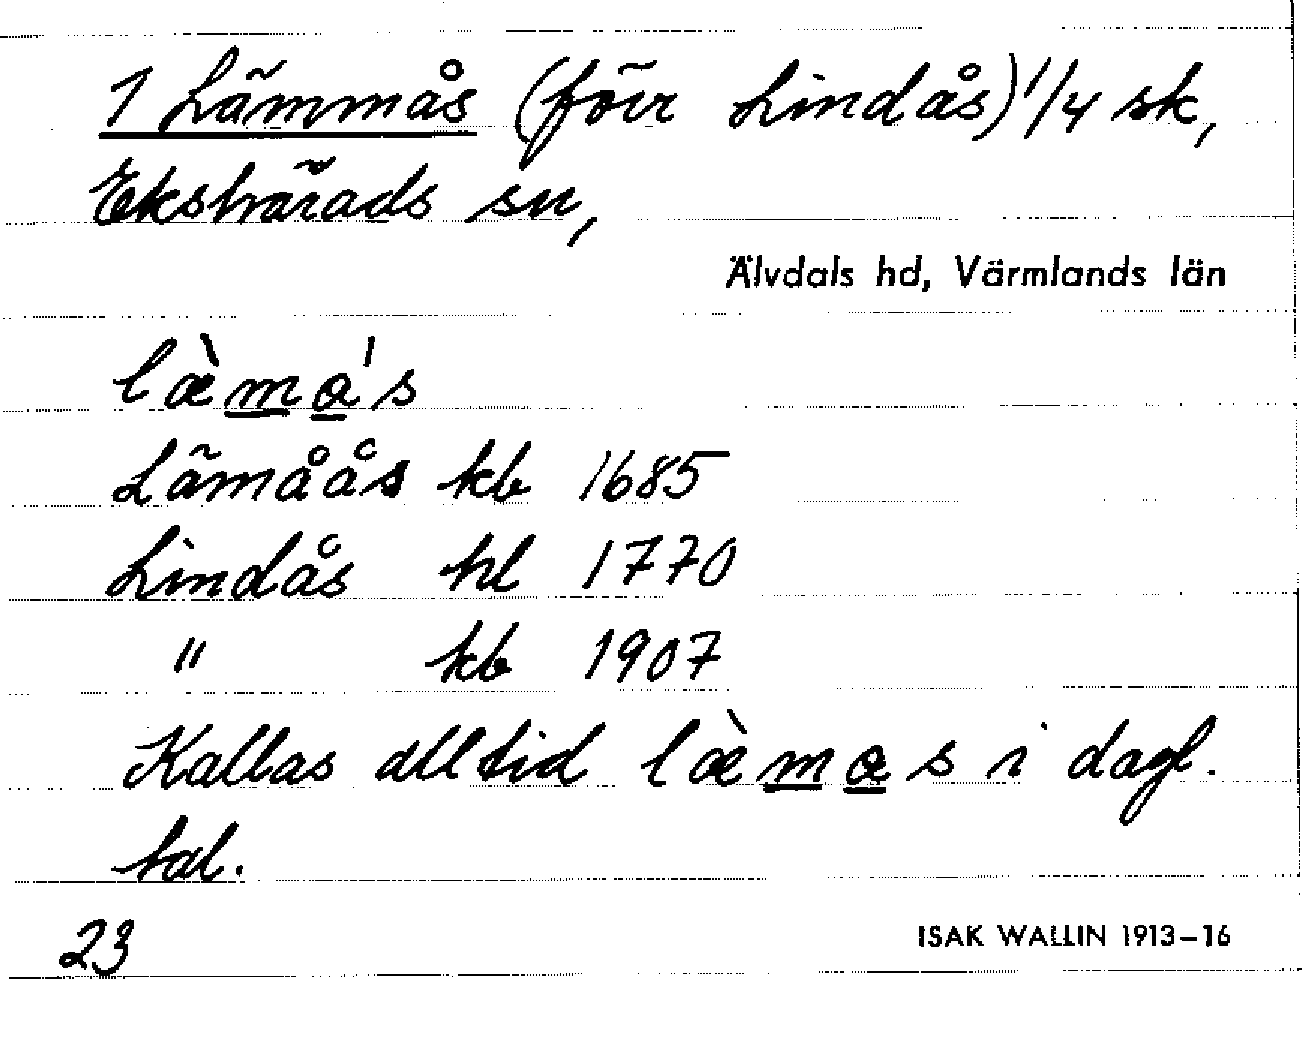 1 Lämmås (förr Lindås) 1/4 sk,
Ekshärads sn,
Älvdals hd, Värmlands län
læ̀ma's
Lämåås kb 1685
Lindås hl 1770
" kb 1907
Kallas alltid læ̀mas i dagl.
tal.
23
ISAK WALLIN 1913–16